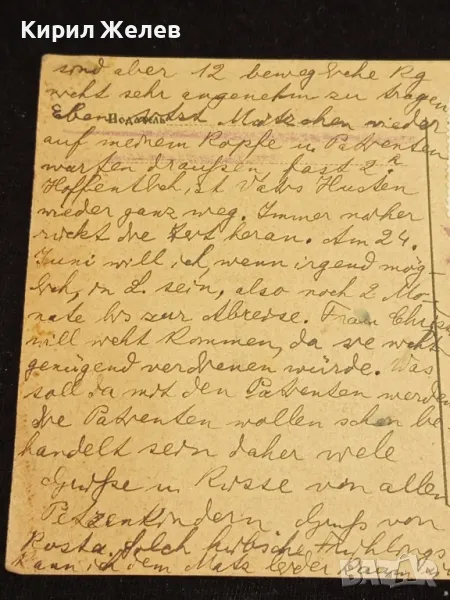 Кирил Желев
sind aber 12 bewegliche Kg
nicht sehr angenehm zu tragen
Eben sitzt Mätzchen wieder
Подател
auf meinem Kopfe u Patienten
warten draußen fast 2
Hoffentlich ist Husten
wieder ganz weg. Immer näher
rückt die Zeit heran. Am 24.
Juni will ich, wenn irgend mög-
lich, in L. sein, also noch 2 Mo-
nate bis zur Abreise. Frau
will nicht kommen, da sie nicht
genügend verdienen würde. Was
soll da mit den Patienten werden
die Patienten wollen schon be-
handelt sein daher viele
Grüße u Küsse von allen
Petzenkindern Gruß von
Kosta. Solch hübsche Frühlings
kann ich dem Matz leider